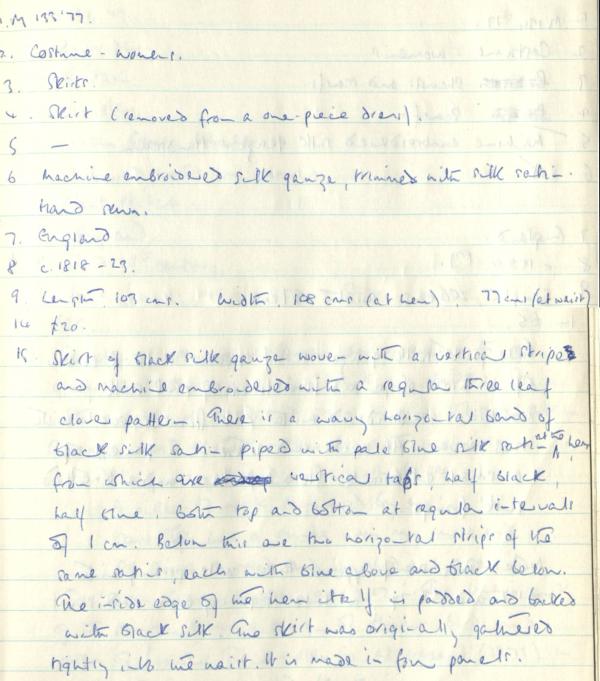 1. M 133'77.
2. Costume - womens.
3. Skirts.
4. Skirt (removed from a one-piece dress).
5 —
6 Machine embroidered silk gauze, trimmed with silk satin.
Hand sewn.
7. England
8 c.1818 - 23.
9. Length. 103 cms. Width. 108 cms (at hem). 77 cms (at waist)
14 £20.
15. Skirt of black silk gauze woven with a vertical stripe
and machine embroidered with a regular three leaf
clover pattern. There is a wavy horizontal band of
black silk satin piped with pale blue silk satin at the hem,
from which are vertical tabs half black,
half blue. Both top and bottom at regular intervals
of 1 cm. Below this are two horizontal strips of the
same satin, each with blue above and black below.
The inside edge of the hem itself is padded and backed
with black silk. The skirt was originally gathered
tightly into the waist. It is made in four panels.